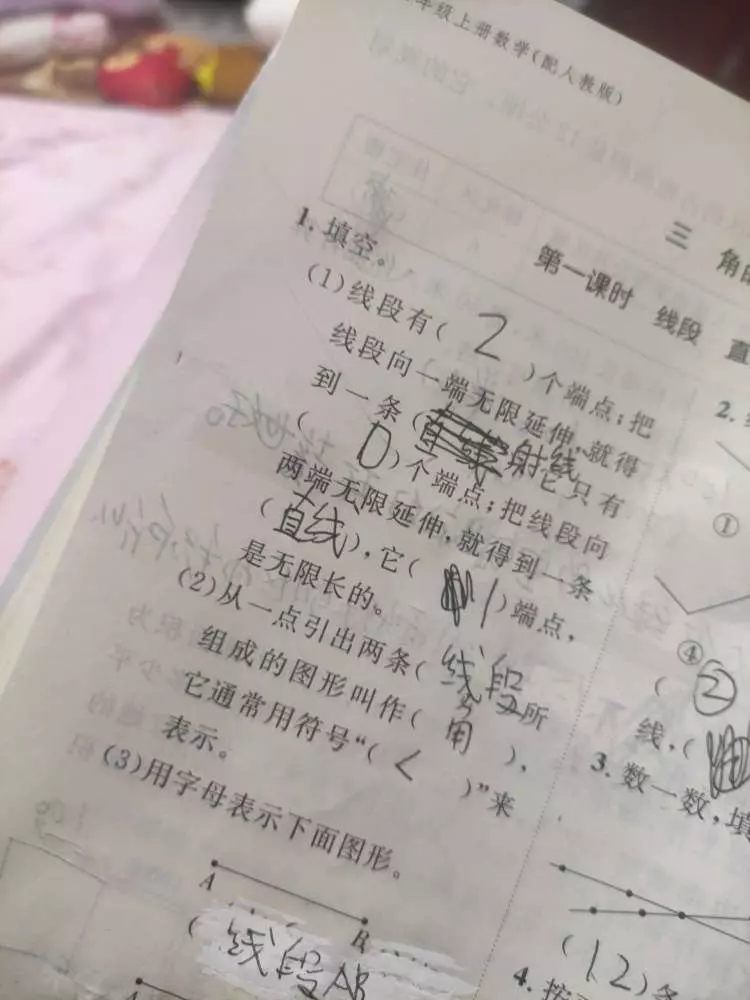 年级上册数学(配人教版)
三 角的
第一课时 线段 直
1. 填空。
(1)线段有( 2 )个端点;把
线段向一端无限延伸,就得
到一条(射线 它只有
( 0 )个端点;把线段向
两端无限延伸,就得到一条
(直线),它( 1 )端点,
是无限长的。
(2)从一点引出两条(线段 所
组成的图形叫作( 角 ),
它通常用符号“( < )”来
表示。
(3)用字母表示下面图形。
A B
( 线段AB
2.
①
④
( ②
线,(
3. 数一数,填
(12)条
4. 按